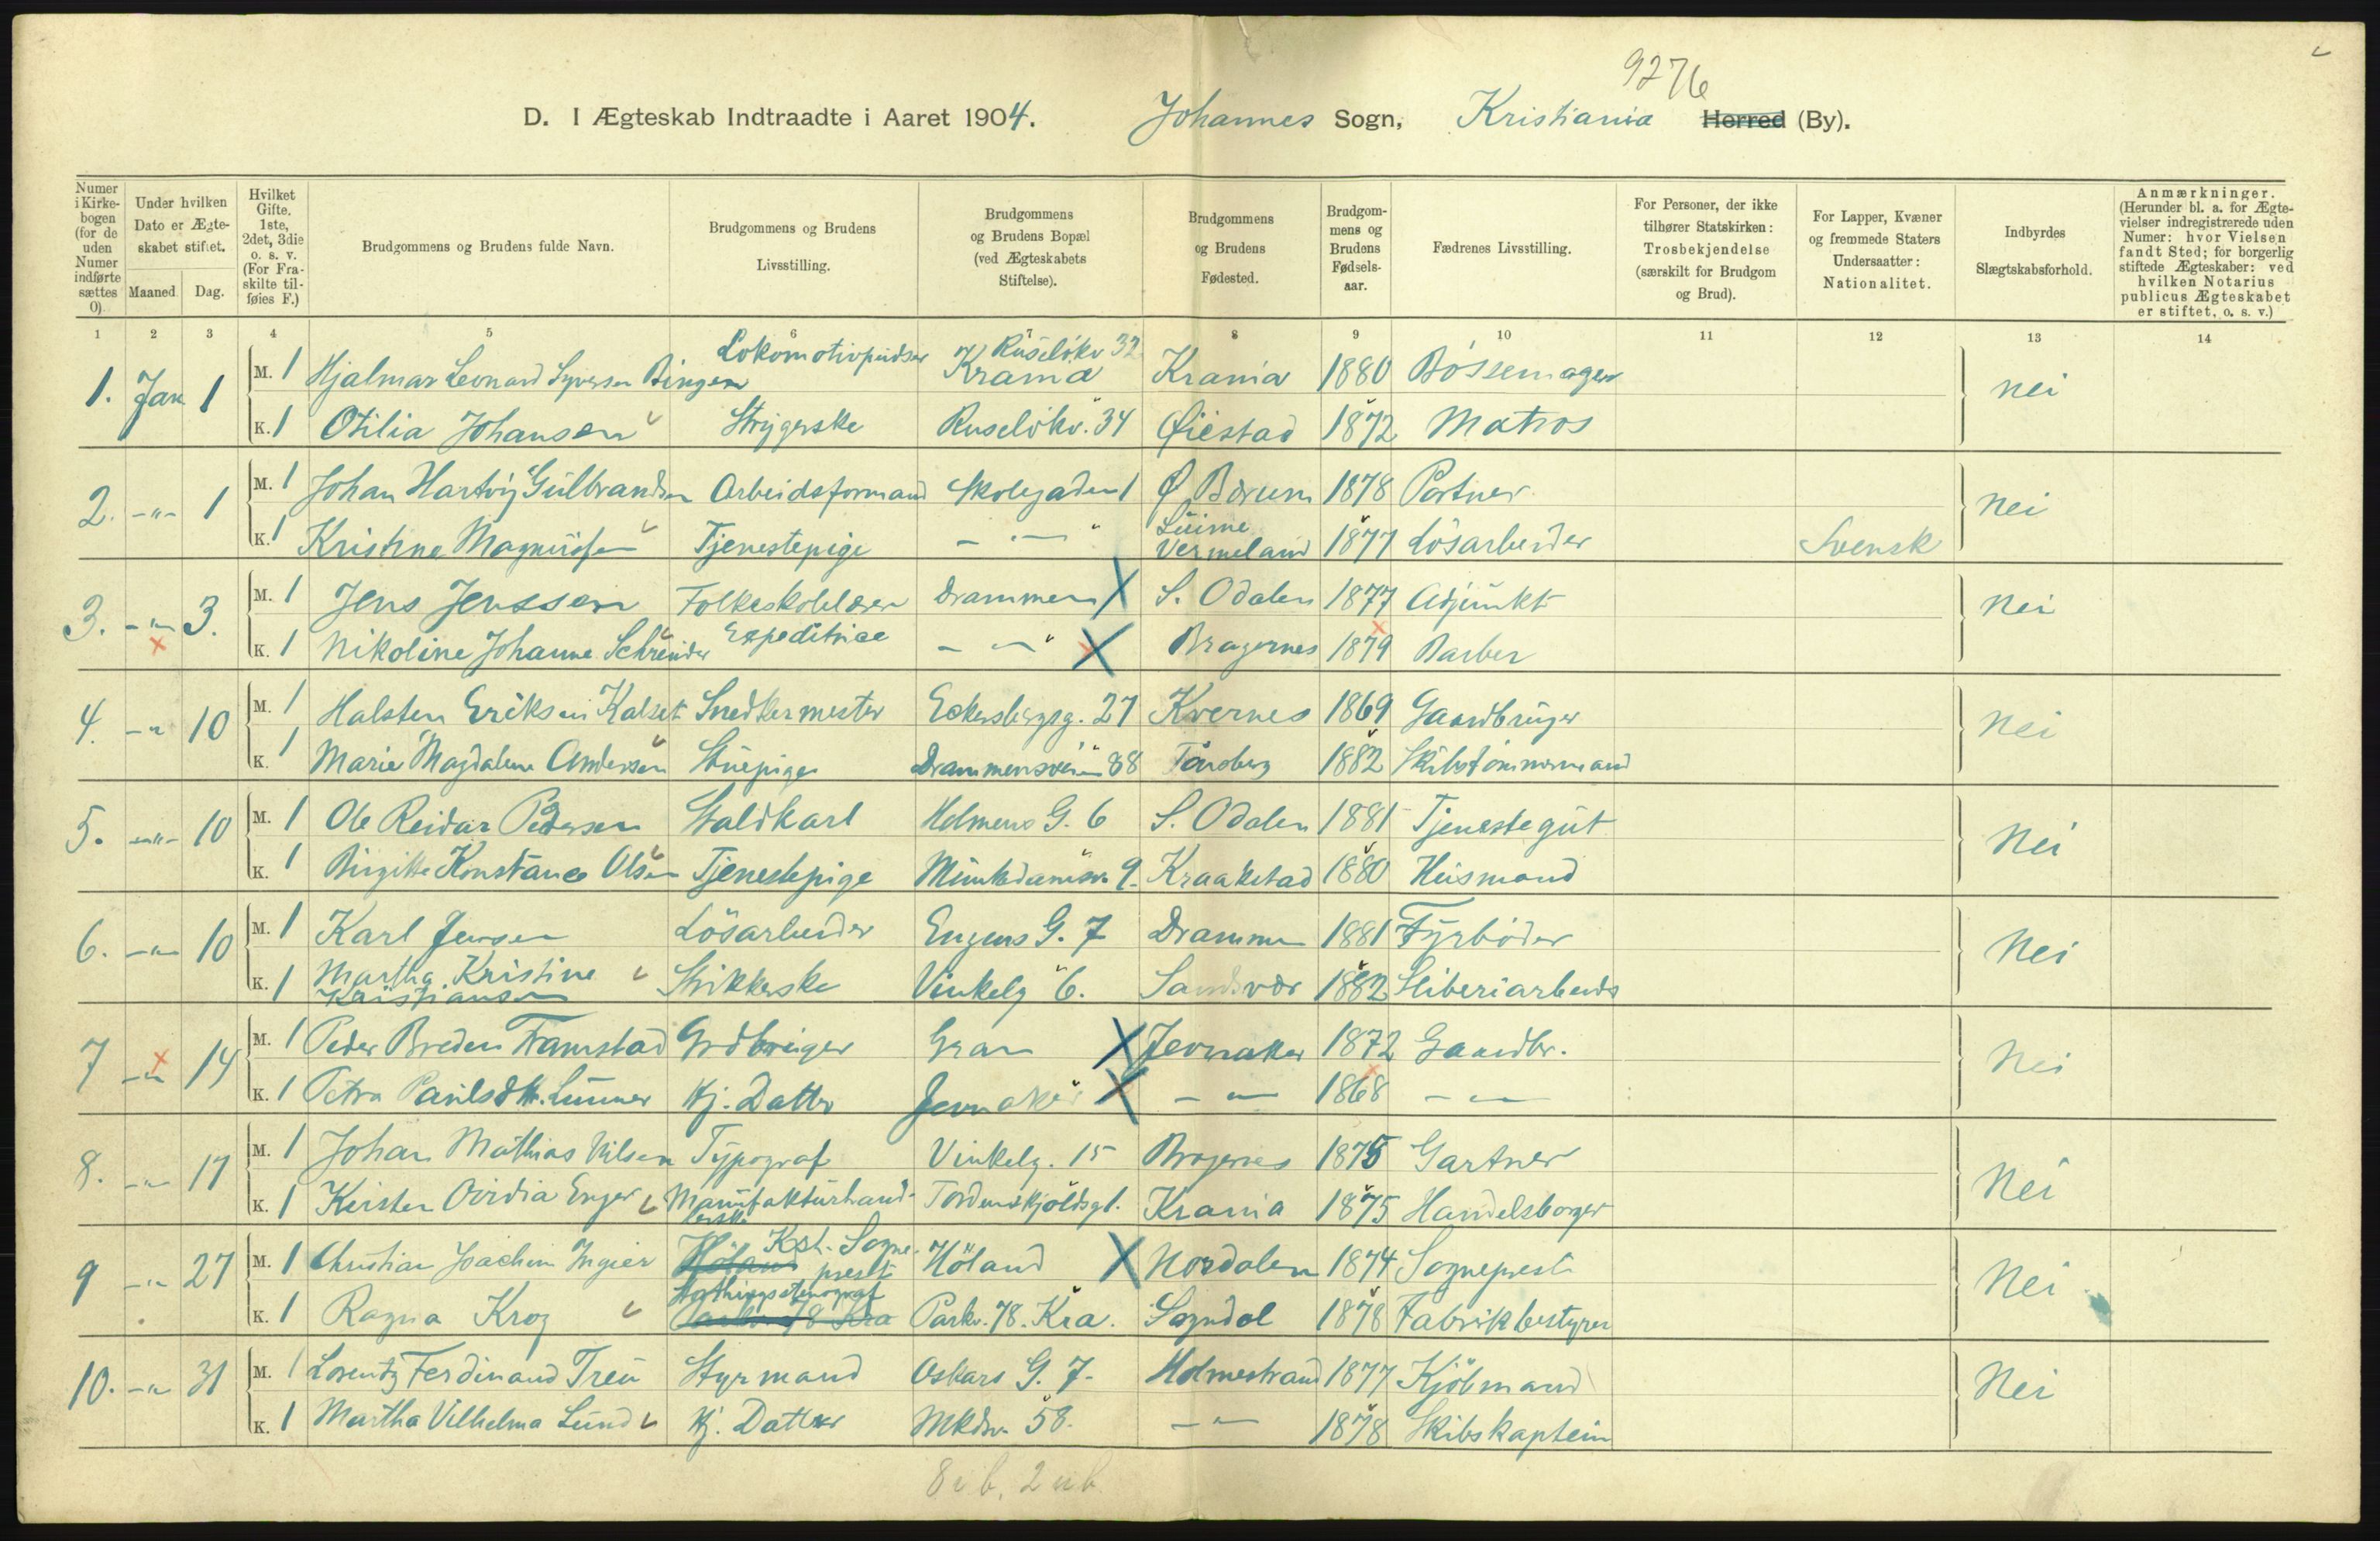 9276
D. I Ægteskab Indtraadte i Aaret 1904. Johannes Sogn, Kristiania Herred (By).
Numer i Kirkebogen (for de uden Numer indførte sættes 0).
Under hvilken Dato er Ægteskabet stiftet.
Maaned. Dag.
Hvilket Gifte. 1ste, 2det, 3die o. s. v. (For Fraskilte tilføies F.)
Brudgommens og Brudens fulde Navn.
Brudgommens og Brudens Livsstilling.
Brudgommens og Brudens Bopæl (ved Ægteskabets Stiftelse).
Brudgommens og Brudens Fødested.
Brudgommens og Brudens Fødselsaar.
Fædrenes Livsstilling.
For Personer, der ikke tilhører Statskirken: Trosbekjendelse (særskilt for Brudgom og Brud).
For Lapper, Kvæner og fremmede Staters Undersaatter: Nationalitet.
Indbyrdes Slægtskabsforhold.
Anmærkninger. (Herunder bl. a. for Ægtevielser indregistrerede uden Numer: hvor Vielsen fandt Sted; for borgerlig stiftede Ægteskaber: ved hvilken Notarius publicus Ægteskabet er stiftet, o. s. v.)
1 2 3 4 5 6 7 8 9 10 11 12 13 14
1. Jan 1 M. 1 Hjalmar Leonard Syversen Bingen Lokomotivpudser Ruseløkv 32 Krania Krania 1880 Bössemager nei
K. 1 Otilia Johansen Strygerske Ruseløkv. 34 Øiestad 1872 Matros
2. -"- 1 M. 1 Johan Hartvig Gulbrandsen Arbeidsformand Skolegaden 1 Ø Bærum 1878 Portner Nei
K. 1 Kristine Magnussen Tjenestepige - " - Vermeland 1877 Lösarbeider Svensk
3. -"- 3. M. 1 Jens Jenssen Folkeskolelærer Drammen X S. Odalen 1877 Adjunkt Nei
K. 1 Nikoline Johanne Schrøuder Expeditrice - " - X Bragernes 1879 Barber
4. -"- 10 M. 1 Halsten Eriksen Kalset Snedkermester Eckersbergsg. 27 Kvernes 1869 Gaardbruger Nei
K. 1 Marie Magdalene Andersen Stuepige Drammensveien 88 Tönsberg 1882 Skibstömmermand
5. -"- 10 M. 1 Ole Reidar Pedersen Staldkarl Holmens G. 6 S. Odalen 1881 Tjenestegut Nei
K. 1 Birgitte Konstance Olsen Tjenestepige Munkedamsv. 9. Kraakstad 1880 Husmand
6. -"- 10 M. 1 Karl Jensen Lösarbeider Engens G. 7 Drammen 1881 Fyrböder Nei
K. 1 Martha Kristine Kristiansen Strikkerske Vinkelg 6. Sandsvær 1882 Sliberiarbeider
7 -"- 14 M. 1 Peder Breden Framstad Grdbruger Gran X Jevnaker 1872 Gaardbr. Nei
K. 1 Petra Paulsdtt. Lunner Hj. Datter Jevnaker X - " - 1868 - " -
8. -"- 17 M. 1 Johan Mathias Nilsen Typograf Vinkelg. 15 Bragernes 1875 Gartner Nei
K. 1 Kirsten Ovidia Enger Manufakturhandlerske Tordenskjöldsg 1. Krania 1875 Handelsborger
9 -"- 27 M. 1 Christian Joachim Ingier Höland Kst. Sogneprest Höland X Nordalen 1874 Sogneprest Nei
K. 1 Ragna Krog Stortingsstenograf Parkv. 78 Kra Parkv. 78. Kra. Sogndal 1878 Fabrikbestyrer
10. -"- 31 M. 1 Lorentz Ferdinand Treu Styrmand Oskars G. 7. Holmestrand 1877 Kjöbmand Nei
K. 1 Martha Vilhelma Lund Hj. Datter Mkdsv. 58. - " - 1878 Skibskaptein
8 ib, 2 ub